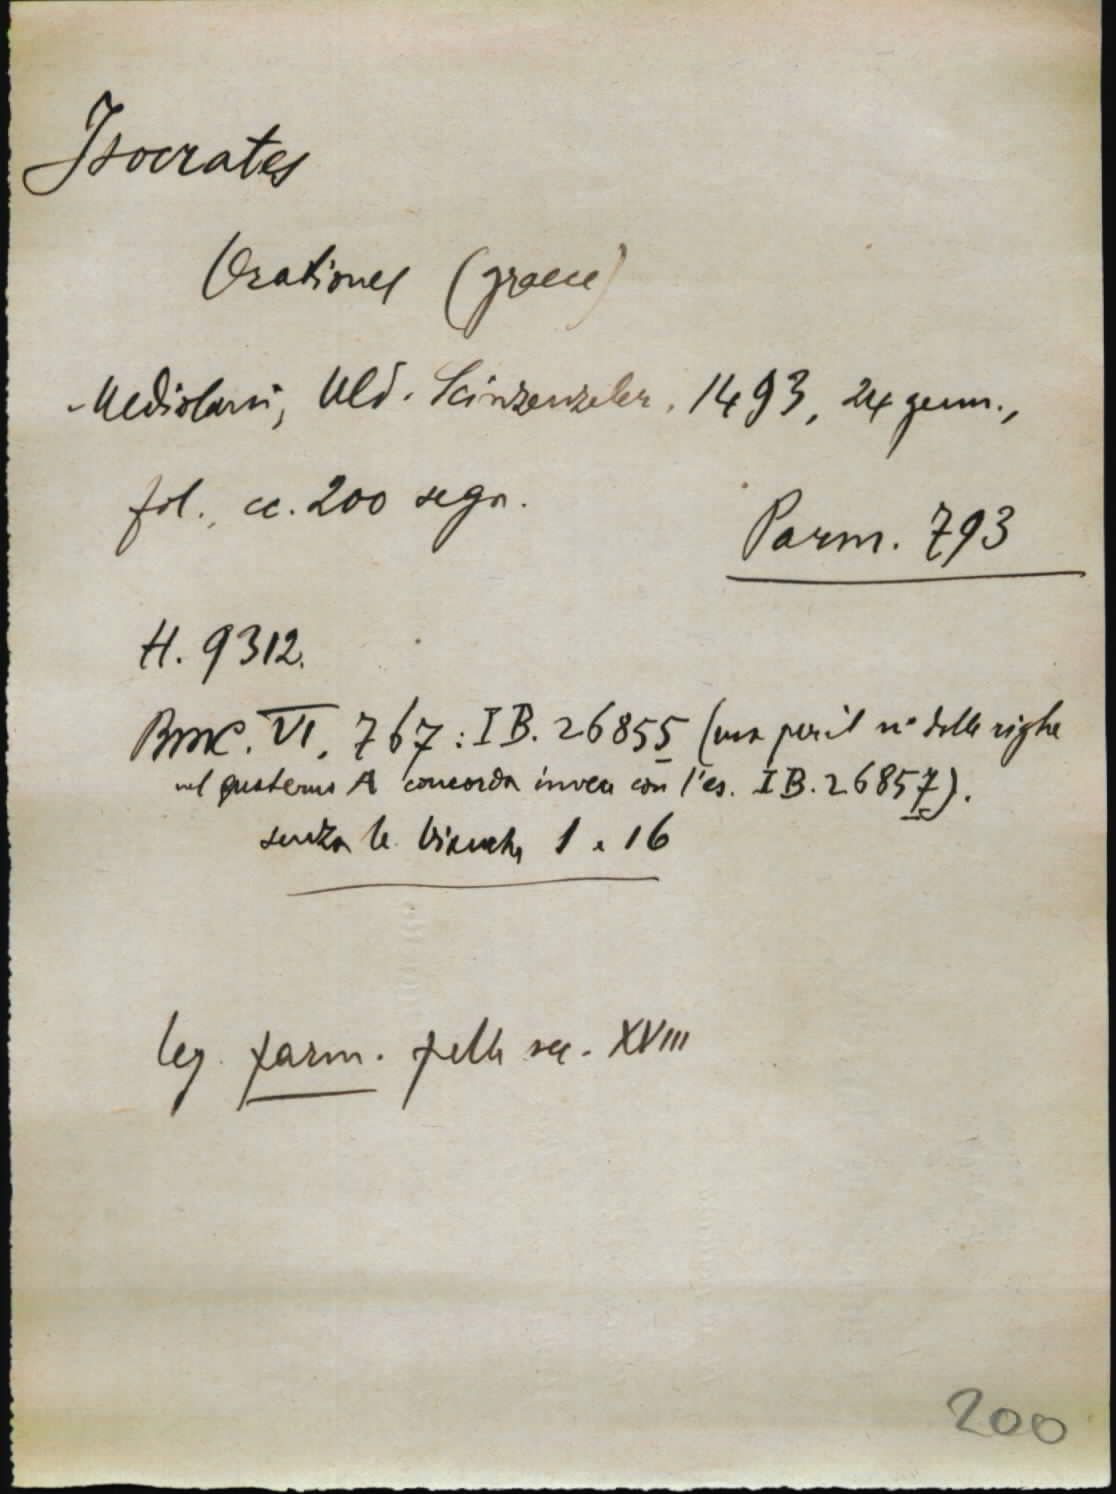 Isocrates
Orationes (graece)
Mediolani, Uld. Scinzenzeler, 1493, 24 genn.,
fol., cc. 200 segn.
Parm. 793
H. 9312.
BMC. VI, 767: IB. 26855 (ma per il n° delle righe
nel quaterno A concorda invece con l'es. IB. 26857).
senza le bianche 1 e 16
leg. parm. pelle sec. XVIII
200